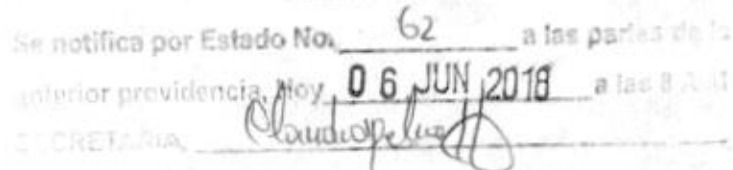 Se notifica por Estado No. 62 a las partes de la
anterior providencia, Hoy 06 JUN 2018 a las 8 A.M
SECRETARIA,